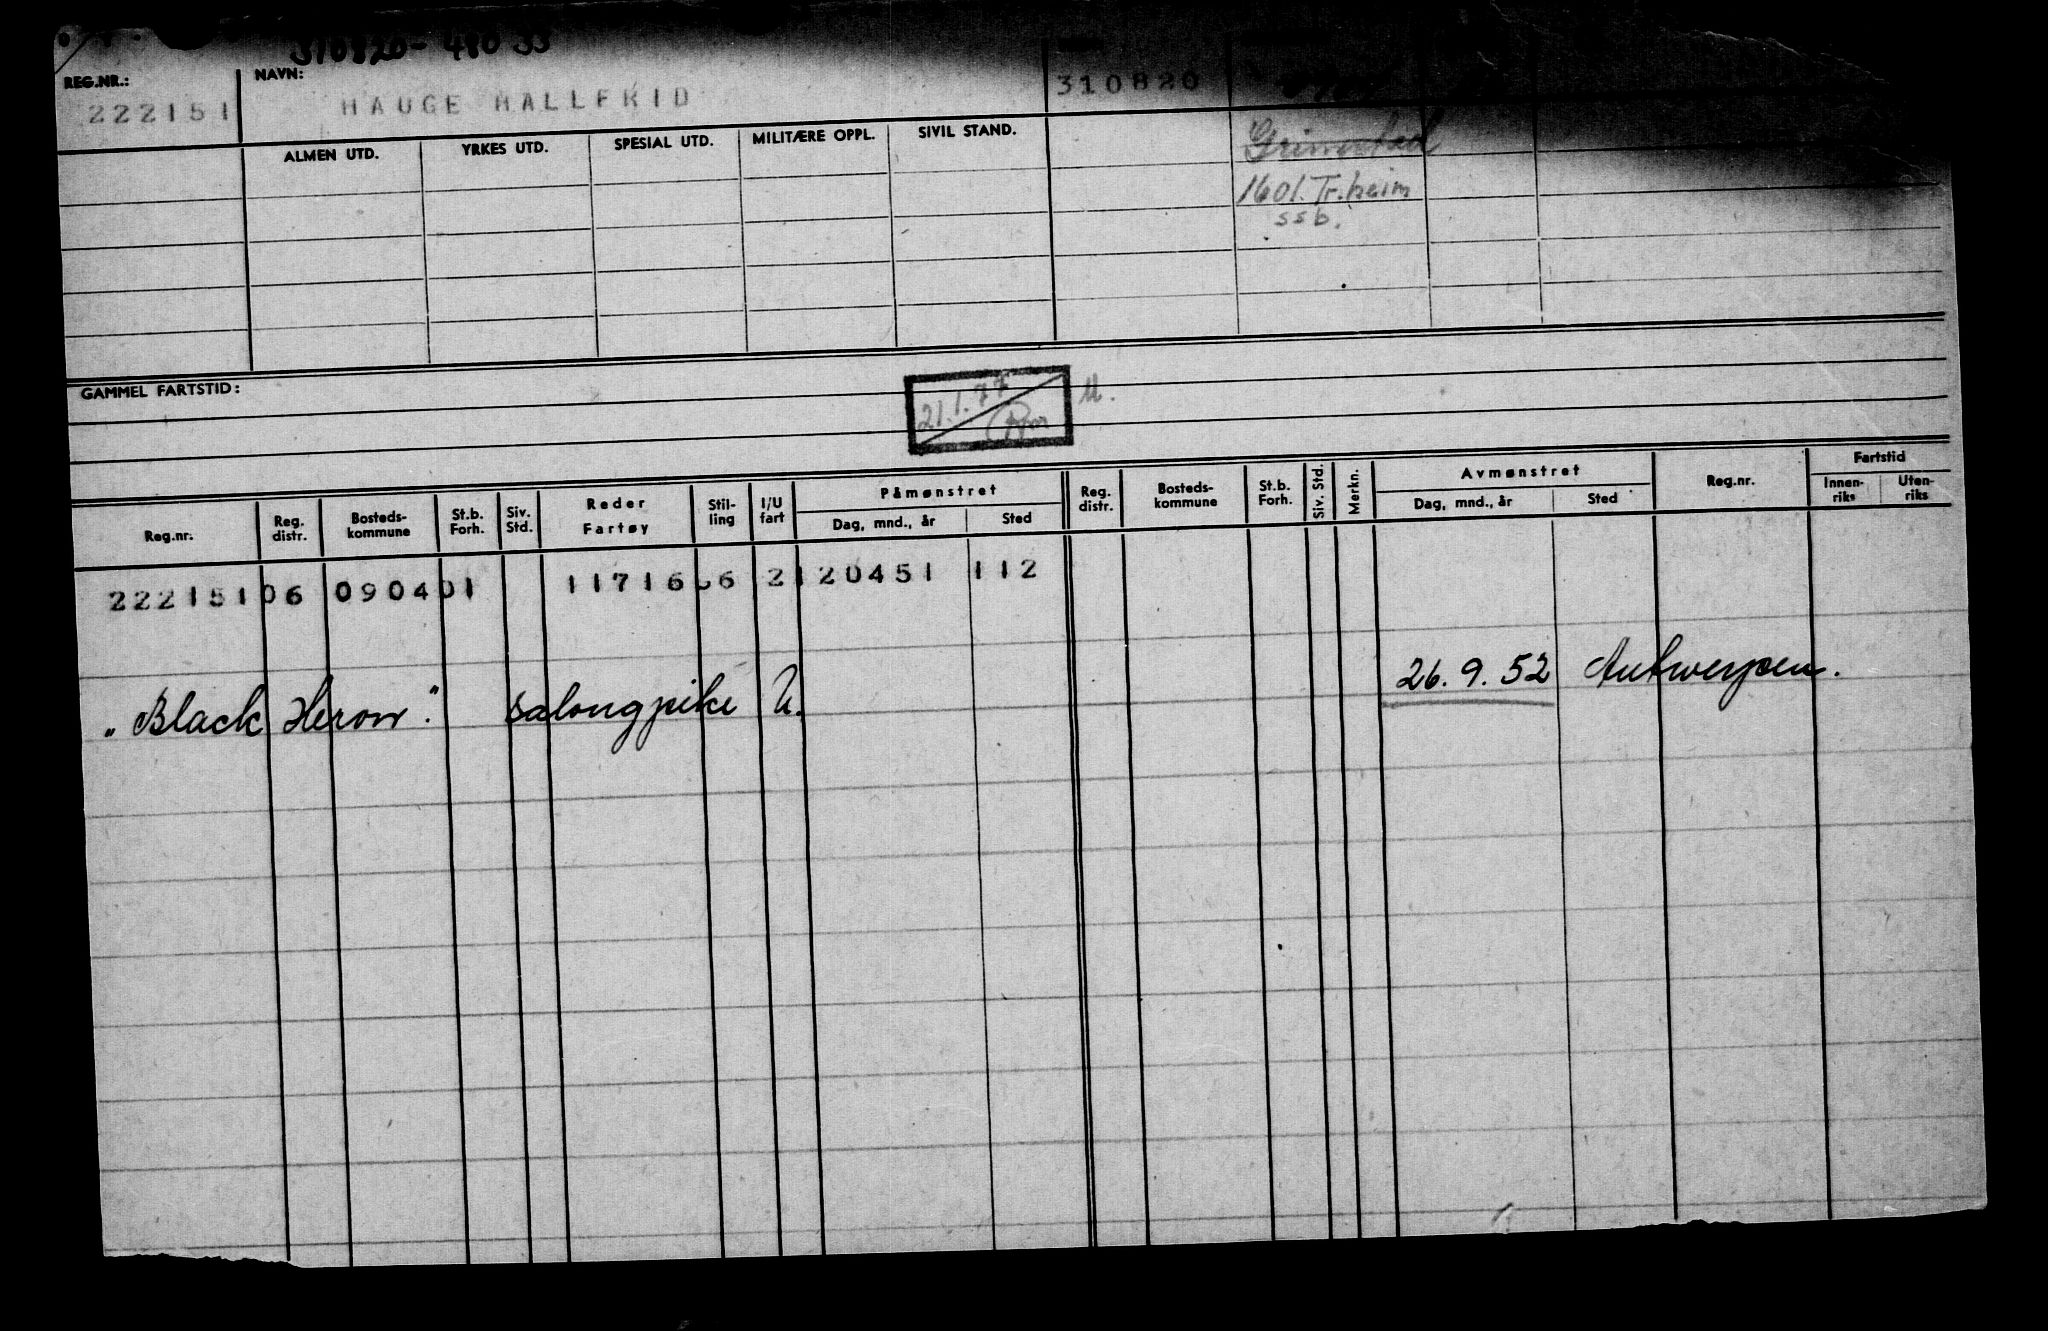 310820 - 480 33
REG.NR.: NAVN:
222151 HAUGE HALLFRID 310820
ALMEN UTD. YRKES UTD. SPESIAL UTD. MILITÆRE OPPL. SIVIL STAND.
Grimstad
1601. Tr.heim
ssb.
GAMMEL FARTSTID:
21.1.77 U.
Reg.nr. Reg. distr. Bosteds-kommune St.b. Forh. Siv. Std. Reder Fartøy Stil-ling I/U fart Påmønstret Dag, mnd., år Sted Reg. distr. Bosteds-kommune St.b. Forh. Siv. Std. Merkn. Avmønstret Dag, mnd., år Sted Reg.nr. Fartstid Innen-riks Uten-riks
222151 06 0904 01 11716 6 2 120451 112
„Black Heron." salongpike U. 26.9.52 Antwerpen.